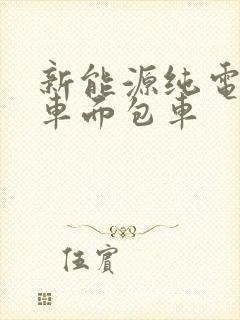 新能源纯電
車面包車
伍賓